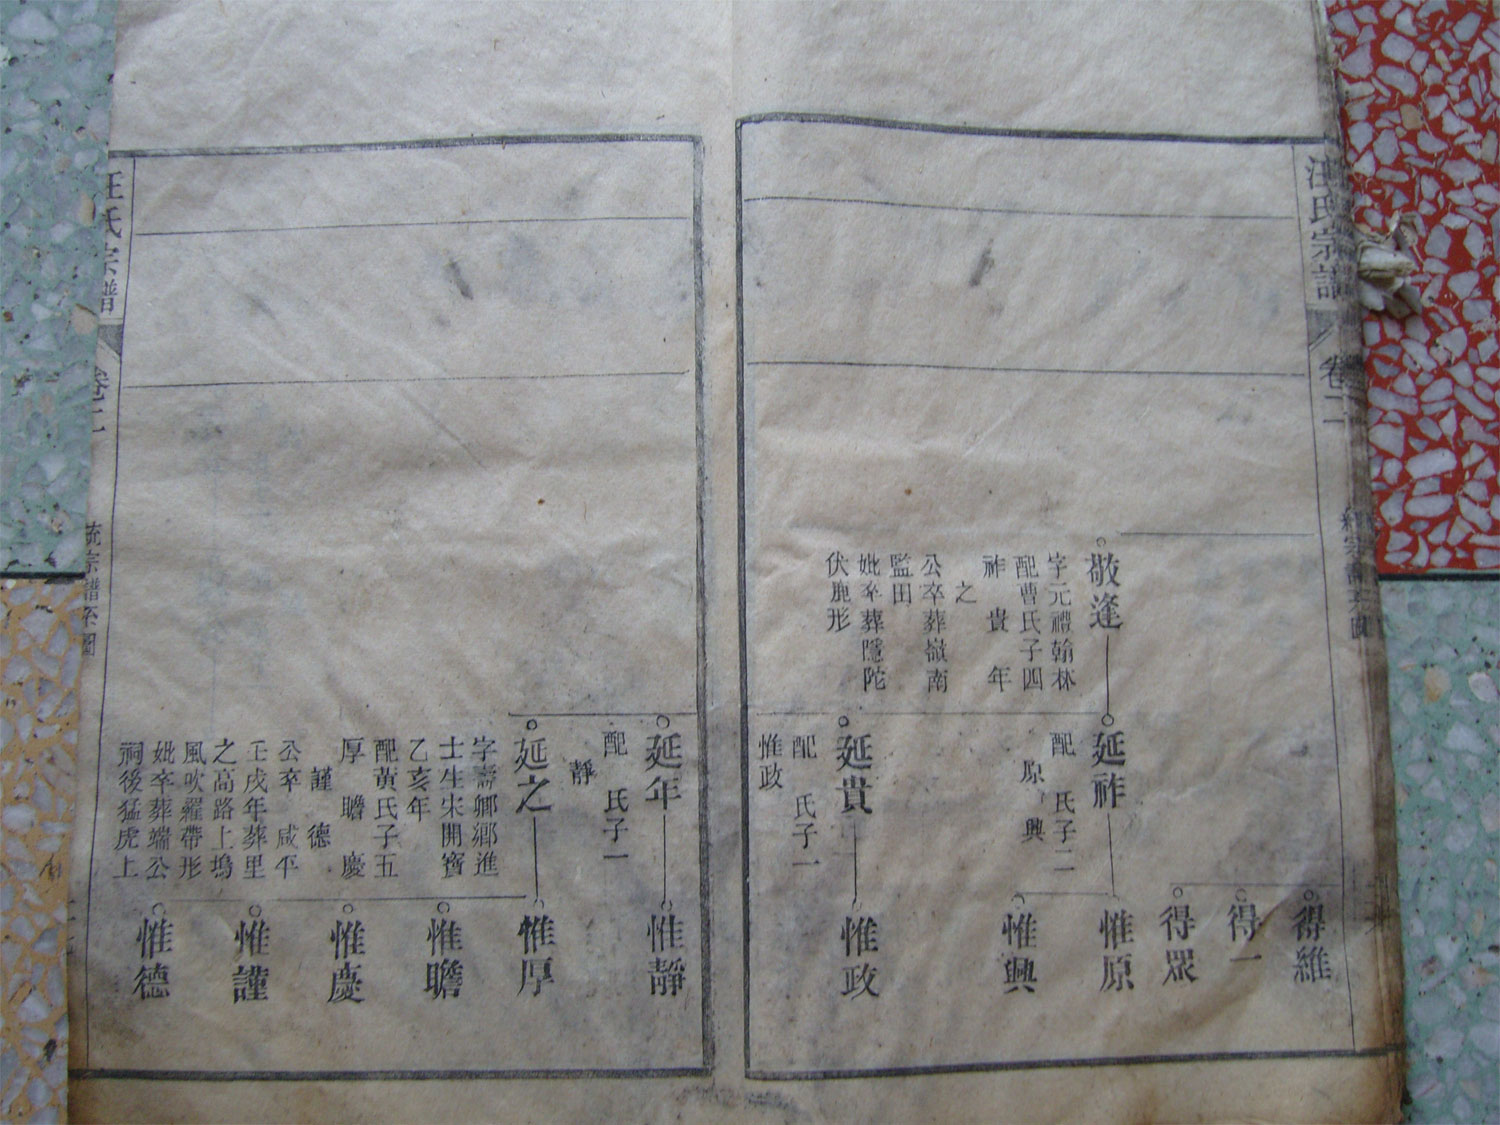 汪氏宗譜
卷二
得維
得一
得眾
敬逢
字元禮翰林
配曹氏子四
祚 貴 年
之
公卒葬嶺南
監田
妣卒葬隱陀
伏鹿形
延祚
配 氏子二
原 興
惟原
惟興
延貴
配 氏子一
惟政
惟政
延年
配 氏子一
靜
惟靜
延之
字壽卿鄉進
士生宋開寶
乙亥年
配黃氏子五
厚 瞻 慶
謹 德
公卒 咸平
壬戌年葬里
之高路上塢
風吹羅帶形
妣卒葬端公
祠後猛虎上
惟厚
惟瞻
惟慶
惟謹
惟德
汪氏宗譜
卷二
統宗譜系圖